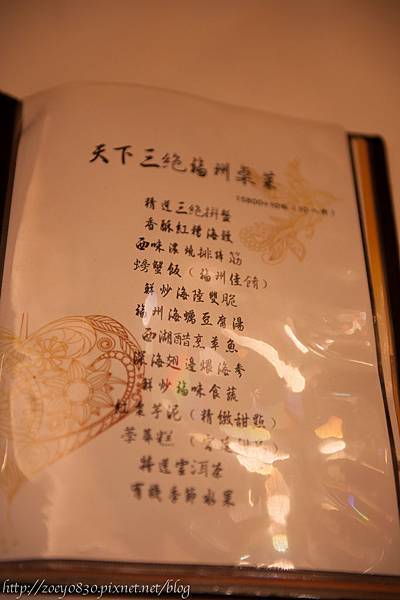 天下三絕福州桌菜
15800+10% (10人份)
精選三絕拼盤
香酥紅糟海鰻
西味濃燒排蹄筋
螃蟹飯（福州佳餚）
鮮炒海陸雙脆
福州海蠣豆腐湯
西湖醋烹草魚
深海翅邊煨海參
鮮炒福味食蔬
紅棗芋泥（精緻甜點）
荸薺糕
特選雲洱茶
有機季節水果
http://zoey0830.pixnet.net/blog